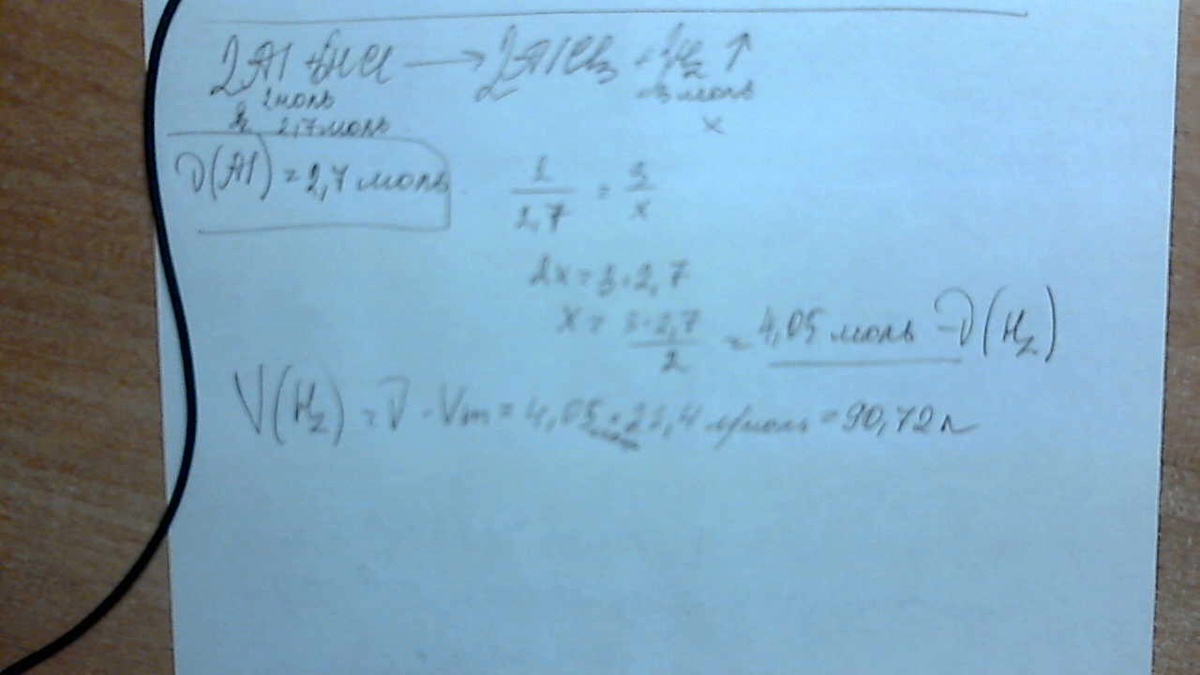 2Al + 6HCl → 2AlCl₃ + 3H₂ ↑
2моль 3 моль
2,7моль x
ν(Al) = 2,7 моль
2/2,7 = 3/x
2x = 3·2,7
x = 3·2,7/2 = 4,05 моль - ν(H₂)
V(H₂) = ν · Vm = 4,05 · 22,4 л/моль = 90,72 л